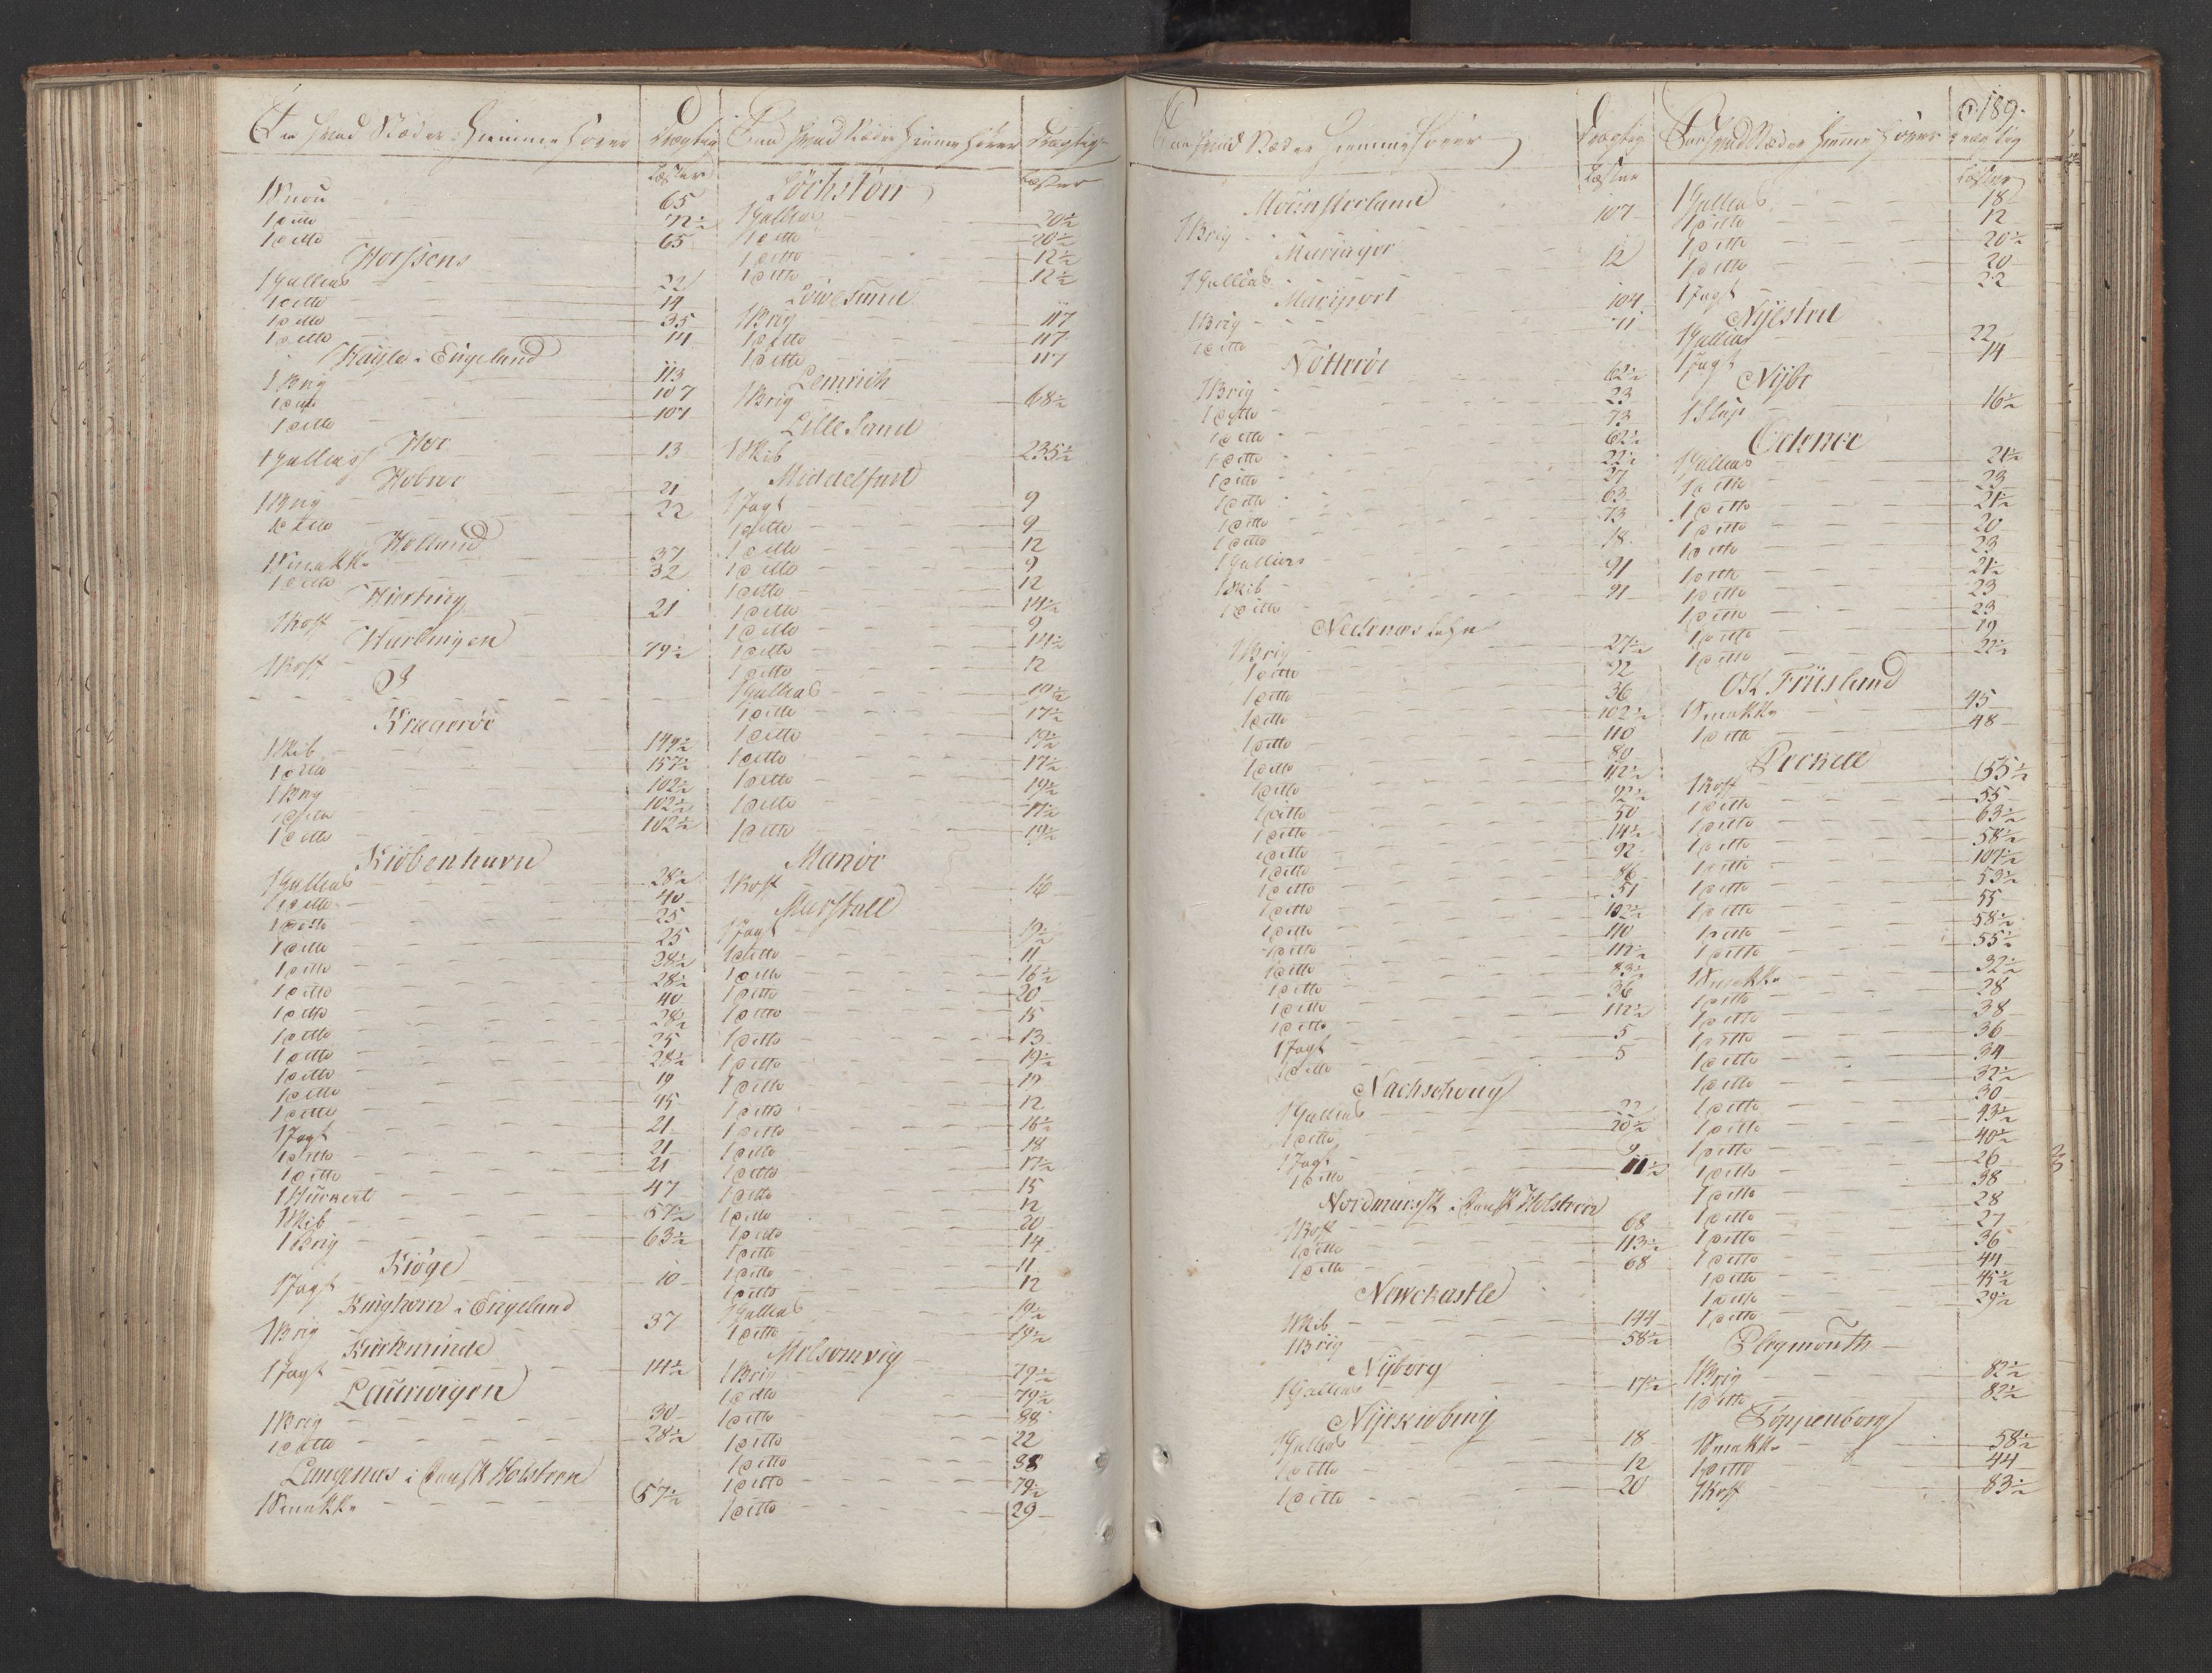 Hvad Stæder Hiemmehører Drægtig
Læster
1 Snou 65
1 Ditto 72½
1 Ditto 65
Horssens
1 Gallias 22
1 Ditto 14
1 Ditto 35
1 Ditto 14
i Engeland
1 Brig 113
1 Ditto 107
1 Ditto 107
1 Gallias 13
Hobroe
1 Brig 21
1 Ditto 22
Holland
1 Smakke 37
1 Ditto 32
Hiering
1 Koff 21
Harlingen
1 Koff 79½
Kragerøe
1 Skib 149½
1 Ditto 157½
1 Brig 102½
1 Ditto 102½
1 Ditto 102½
Kiöbenhavn
1 Gallias 28½
1 Ditto 40
1 Ditto 25
1 Ditto 25
1 Ditto 28½
1 Ditto 28½
1 Ditto 40
1 Ditto 28½
1 Ditto 25
1 Ditto 28½
1 Ditto 19
1 Ditto 45
1 Jagt 21
1 Ditto 21
1 Ditto 21
1 Huckert 47
1 Skib 57½
1 Brig 63½
Kiöge
1 Jagt 10
Kinghorn i Engeland
1 Brig 37
Kierteminde
1 Jagt 14½
Laurwigen
1 Brig 30
1 Ditto 28½
Langenæs i Dansk Holsteen
1 Smakke 57½
Hvad Stæder Hiemmehører Drægtig
Læster
Löchstöir
1 Gallias 20½
1 Ditto 20½
1 Ditto 12½
1 Ditto 12½
Lövesund
1 Brig 117
1 Ditto 117
1 Ditto 117
Lemrich
1 Brig 68½
Lille Sand
1 Skib 235½
Middelfart
1 Jagt 9
1 Ditto 9
1 Ditto 12
1 Ditto 9
1 Ditto 12
1 Ditto 14½
1 Ditto 9
1 Ditto 14½
1 Ditto 12
1 Gallias 19½
1 Ditto 17½
1 Ditto 19½
1 Ditto 17½
1 Ditto 19½
1 Ditto 17½
1 Ditto 19½
Manöe
1 Koff 16
Marstall
1 Jagt 19½
1 Ditto 11
1 Ditto 16½
1 Ditto 20
1 Ditto 15
1 Ditto 13
1 Ditto 19½
1 Ditto 17
1 Ditto 12
1 Ditto 16½
1 Ditto 18
1 Ditto 17½
1 Ditto 15
1 Ditto 12
1 Ditto 20
1 Ditto 14
1 Ditto 11
1 Ditto 12
1 Gallias 19½
1 Ditto 19½
Melsomvig
1 Brig 79½
1 Ditto 79½
1 Ditto 88
1 Ditto 22
1 Ditto 88
1 Ditto 79½
1 Ditto 29
Hvad Stæder Hiemmehører Drægtig
Læster
Mounsterland
1 Brig 107
Mariager
1 Gallias 12
Mariport
1 Brig 104
1 Ditto 71
Nötteröe
1 Brig 62½
1 Ditto 23
1 Ditto 73
1 Ditto 62½
1 Ditto 22½
1 Ditto 27
1 Ditto 63
1 Ditto 73
1 Gallias 18
1 Skib 91
1 Ditto 91
Nedenæs Lehn
1 Brig 27½
1 Ditto 92
1 Ditto 36
1 Ditto 102½
1 Ditto 110
1 Ditto 80
1 Ditto 112½
1 Ditto 92½
1 Ditto 50
1 Ditto 14½
1 Ditto 92
1 Ditto 86
1 Ditto 51
1 Ditto 102½
1 Ditto 110
1 Ditto 112½
1 Ditto 83½
1 Ditto 36
1 Ditto 112½
1 Jagt 5
1 Ditto 5
Nachschoug
1 Gallias 22
1 Ditto 20½
1 Jagt 9
1 Ditto 11½
Nordmarsk i Dansk Holsteen
1 Koff 68
1 Ditto 113½
1 Ditto 68
Newckastle
1 Skib 144
1 Brig 58½
Nyborg
1 Gallias 17½
Nyekiöbing
1 Gallias 18
1 Ditto 12
1 Ditto 20
189.
Hvad Stæder Hiemmehører Drægtig
Læster
1 Gallias 18
1 Ditto 12
1 Ditto 20½
1 Ditto 20
1 Jagt 22
Nyested
1 Gallias 22
1 Jagt 14
Nybe
1 Slup 16½
Odense
1 Gallias 21½
1 Ditto 23
1 Ditto 21½
1 Ditto 20
1 Ditto 23
1 Ditto 21½
1 Ditto 23
1 Ditto 23
1 Ditto 19
1 Ditto 22½
Ost Friisland
1 Smakke 45
1 Ditto 48
Pekell
1 Koff 55½
1 Ditto 55
1 Ditto 63½
1 Ditto 58½
1 Ditto 107½
1 Ditto 53½
1 Ditto 55
1 Ditto 58½
1 Ditto 55½
1 Smakke 32½
1 Ditto 28
1 Ditto 38
1 Ditto 36
1 Ditto 34
1 Ditto 32½
1 Ditto 30
1 Ditto 43½
1 Ditto 40½
1 Ditto 26
1 Ditto 38
1 Ditto 28
1 Ditto 27
1 Ditto 36
1 Ditto 44
1 Ditto 45½
1 Ditto 29½
Pleymouth
1 Brig 82½
1 Ditto 82½
Poppenborg
1 Smakke 58½
1 Ditto 44
1 Koff 83½